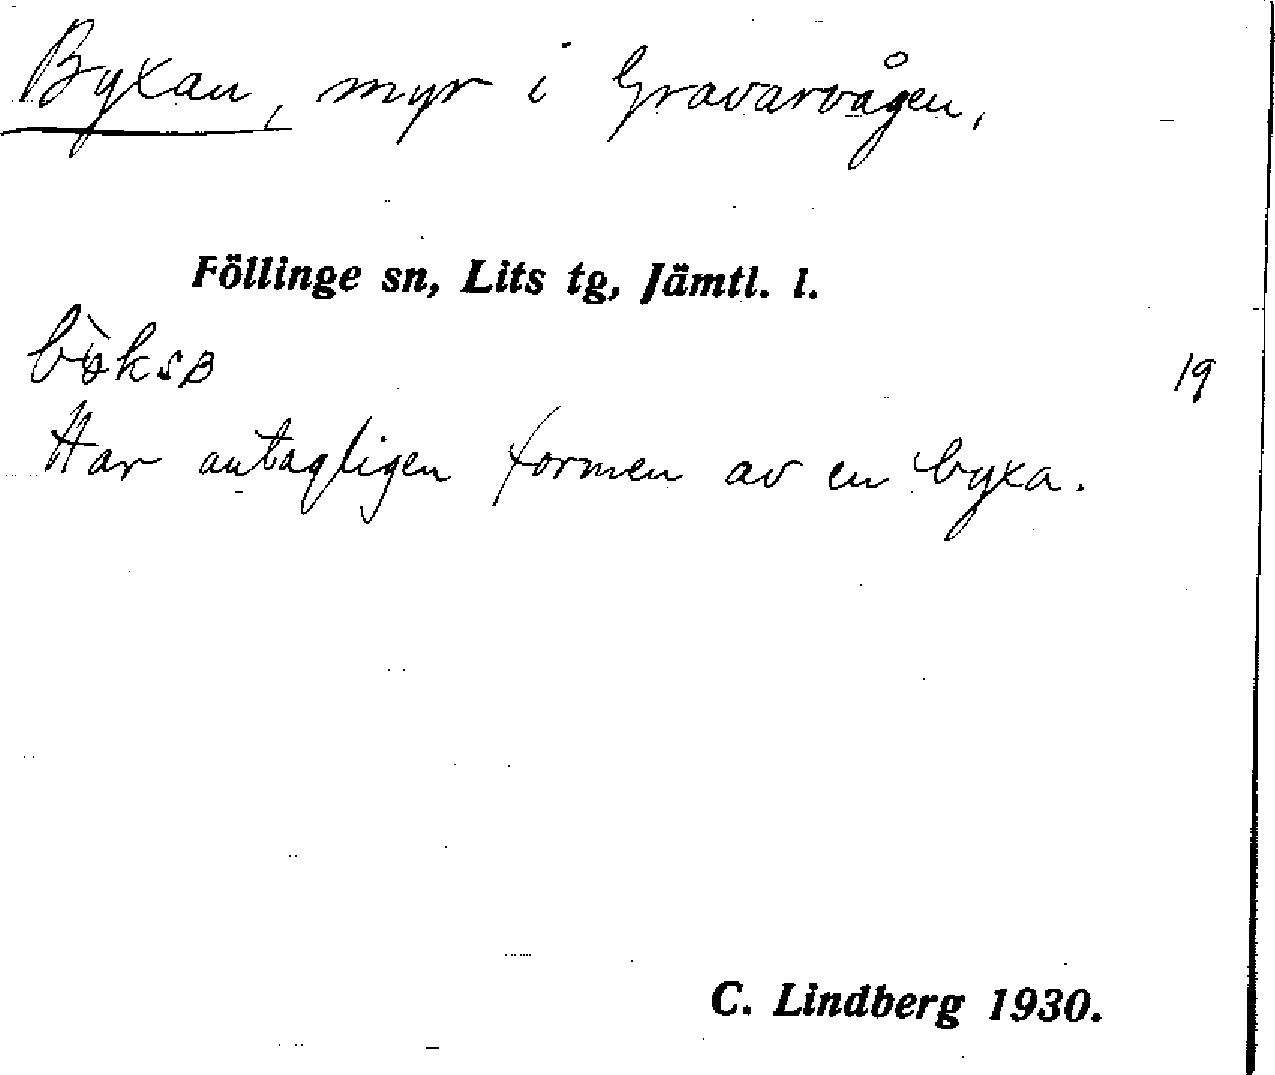 Byxan, myr i Gravarvågen,
Föllinge sn, Lits tg, Jämtl. l.
19
Har antagligen formen av en byxa.
C. Lindberg 1930.